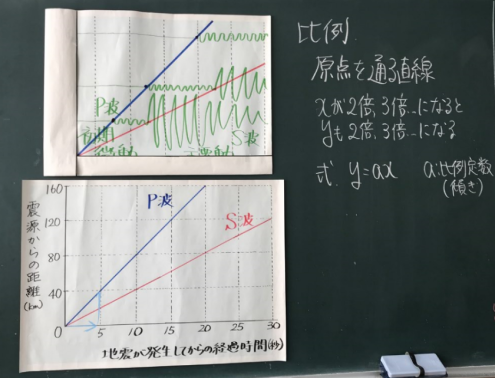 P波
S波
初期
微動
主要動
比例
原点を通る直線
xが2倍、3倍…になると
yも2倍、3倍…になる
式 y=ax a:比例定数
(傾き)
P波
S波
震源からの距離(km)
160
120
80
40
0
5 10 15 20 25 30
地震が発生してからの経過時間(秒)